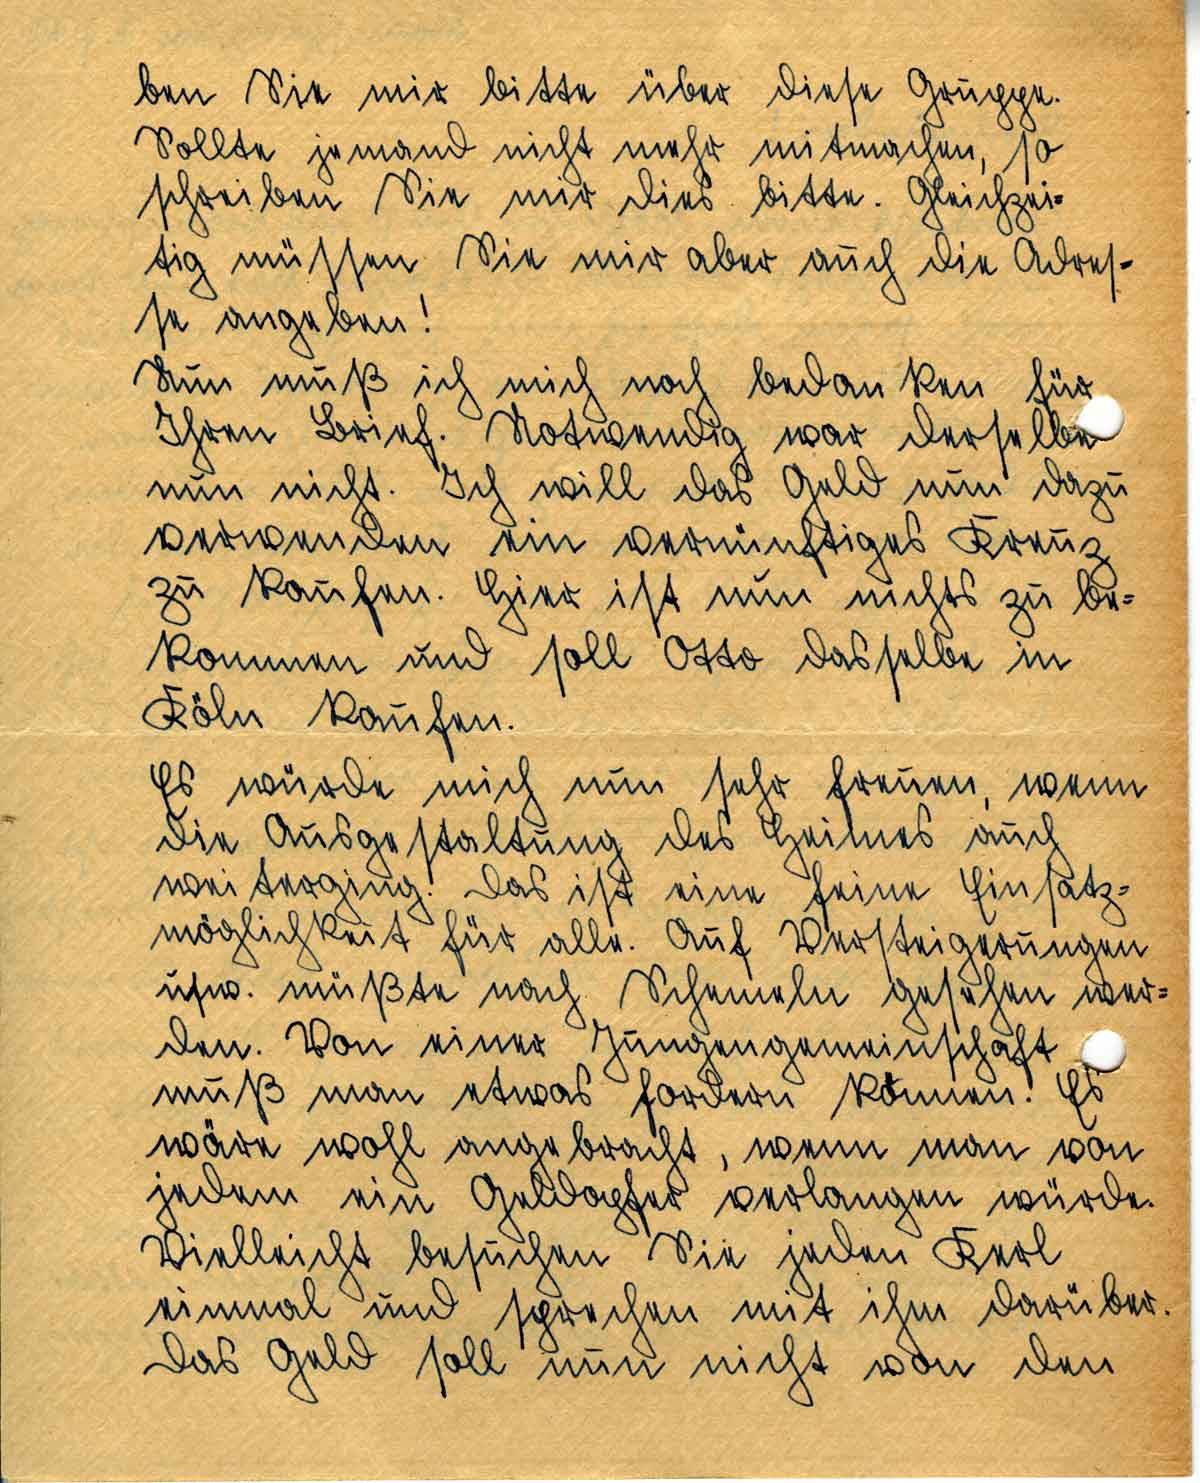 ben Sie mir bitte über diese Gruppe.
Sollte jemand nicht mehr mitmachen, so
schreiben Sie mir dies bitte. Gleichzei=
tig müssen Sie mir aber auch die Adres-
se angeben!
Nun muß ich mich noch bedanken für
Ihren Brief. Notwendig war derselbe
nun nicht. Ich will das Geld nun dazu
verwenden ein vernünftiges Kreuz
zu kaufen. Hier ist nun nichts zu be=
kommen und soll Otto dasselbe in
Köln kaufen.
Es würde mich nun sehr freuen, wenn
die Ausgestaltung des Heimes auch
weiterging. Das ist eine feine Einsatz=
möglichkeit für alle. Auf Versteigerungen
usw. müßte nach Schemeln gesehen wer=
den. Von einer Jungengemeinschaft
muß man etwas fordern können! Es
wäre wohl angebracht, wenn man von
jedem ein Geldopfer verlangen würde.
Vielleicht besuchen Sie jeden Kerl
einmal und sprechen mit ihm darüber.
Das Geld soll nun nicht von den